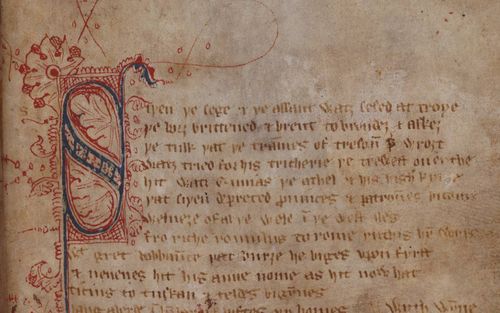 Siþen þe sege & þe assaut watz sesed at troye
þe borȝ brittened & brent to brondez & askez
þe tulk þat þe trammes of tresoun þer wroȝt
watz tried for his tricherie þe trewest on erthe
hit watz Ennias þe athel & his highe kynde
þat siþen depreced prouinces & patrounes bicome
welneȝe of al þe wele in þe west iles
fro riche romulus to rome ricchis hym swyþe
gret bobbaunce þat burȝe he biges vpon fyrst
& neuenes hit his aune nome as hit now hat
ticius to tuskan & teldes bigynnes